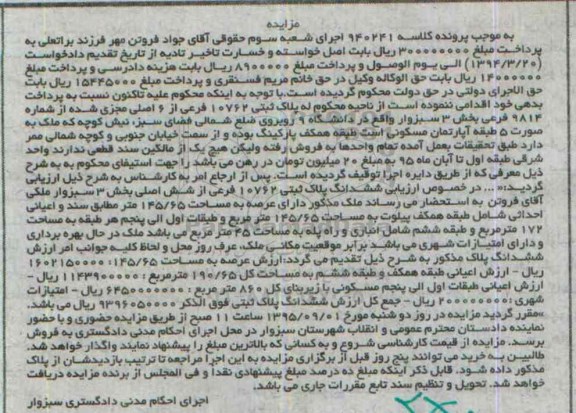 مزایده
به موجب پرونده کلاسه ۹۴۰۲۴۱ اجرای شعبه سوم حقوقی آقای جواد فروتن مهر فرزند براتعلی به
پرداخت مبلغ ۳۰۰۰۰۰۰۰۰ ریال بابت اصل خواسته و خسارت تاخیر تادیه از تاریخ تقدیم دادخواست
(۱۳۹۴/۳/۲۰) الی یوم الوصول و پرداخت مبلغ ۸۹۰۰۰۰۰ ریال بابت هزینه دادرسی و پرداخت مبلغ
۱۴۰۰۰۰۰۰ ریال بابت حق الوکاله وکیل در حق خانم مریم فسنقری و پرداخت مبلغ ۱۵۴۴۵۰۰۰ ریال بابت
حق الاجرای دولتی در حق دولت محکوم گردیده است. با توجه به اینکه محکوم علیه تاکنون نسبت به پرداخت
بدهی خود اقدامی ننموده است از ناحیه محکوم له پلاک ثبتی ۱۰۷۶۲ فرعی از ۶ اصلی مجزی شده از شماره
۹۸۱۴ فرعی بخش ۳ سبزوار واقع در دانشگاه ۹ روبروی ضلع شمالی فضای سبز، نبش کوچه که ملک به
صورت ۵ طبقه آپارتمان مسکونی است طبقه همکف پارکینگ بوده و از سمت خیابان جنوبی و کوچه شمالی ممر
دارد طبق تحقیقات بعمل آمده تمام واحدها به فروش رفته ولیکن هیچ یک از مالکین سند قطعی ندارند واحد
شرقی طبقه اول تا آبان ماه ۹۵ به مبلغ ۲۰ میلیون تومان در رهن می باشد را جهت استیفای محکوم به به شرح
ذیل معرفی که از طریق دایره اجرا توقیف گردیده است. پس از ارجاع امر به کارشناس به شرح ذیل ارزیابی
گردید:«... در خصوص ارزیابی ششدانگ پلاک ثبتی ۱۰۷۶۲ فرعی از شش اصلی بخش ۳ سبزوار ملکی
آقای فروتن به استحضار می رساند ملک مذکور دارای عرصه به مساحت ۱۴۵/۶۵ متر مطابق سند و اعیانی
احداثی شامل طبقه همکف پیلوت به مساحت ۱۴۵/۶۵ متر مربع و طبقات اول الی پنجم هر طبقه به مساحت
۱۷۲ مترمربع و طبقه ششم شامل انباری و راه پله به مساحت ۴۵ متر مربع می باشد ملک در حال بهره برداری
و دارای امتیازات شهری می باشد برابر موقعیت مکانی ملک، عرف روز محل و لحاظ کلیه جوانب امر ارزش
ششدانگ پلاک مذکور به شرح ذیل تقدیم می گردد:ارزش عرصه به مساحت ۱۴۵/۶۵: ۱۶۰۲۱۵۰۰۰۰
ریال - ارزش اعیانی طبقه همکف و طبقه ششم به مساحت کل ۱۹۰/۶۵ مترمربع : ۱۱۴۳۹۰۰۰۰۰ ریال -
ارزش اعیانی طبقات اول الی پنجم مسکونی با زیربنای کل ۸۶۰ متر مربع : ۶۴۵۰۰۰۰۰۰۰ ریال - امتیازات
شهری : ۲۰۰۰۰۰۰۰۰ ریال - جمع کل ارزش ششدانگ پلاک ثبتی فوق الذکر ۹۳۹۶۰۵۰۰۰۰ ریال می باشد.
»مقرر گردید مزایده در روز دو شنبه مورخ ۱۳۹۵/۰۹/۰۱ ساعت ۱۱ صبح از طریق مزایده حضوری و با حضور
نماینده دادستان محترم عمومی و انقلاب شهرستان سبزوار در محل اجرای احکام مدنی دادگستری به فروش
برسد. مزایده از قیمت کارشناسی شروع و به کسانی که بالاترین مبلغ را پیشنهاد نمایند واگذار خواهد شد.
طالبین به خرید می توانند پنج روز قبل از برگزاری مزایده به این اجرا مراجعه تا ترتیب بازدیدشان از پلاک
مذکور داده شود. قابل ذکر اینکه مبلغ ده درصد مبلغ پیشنهادی نقدا و فی المجلس از برنده مزایده دریافت
خواهد شد. تحویل و تنظیم سند تابع مقررات جاری می باشد.
اجرای احکام مدنی دادگستری سبزوار